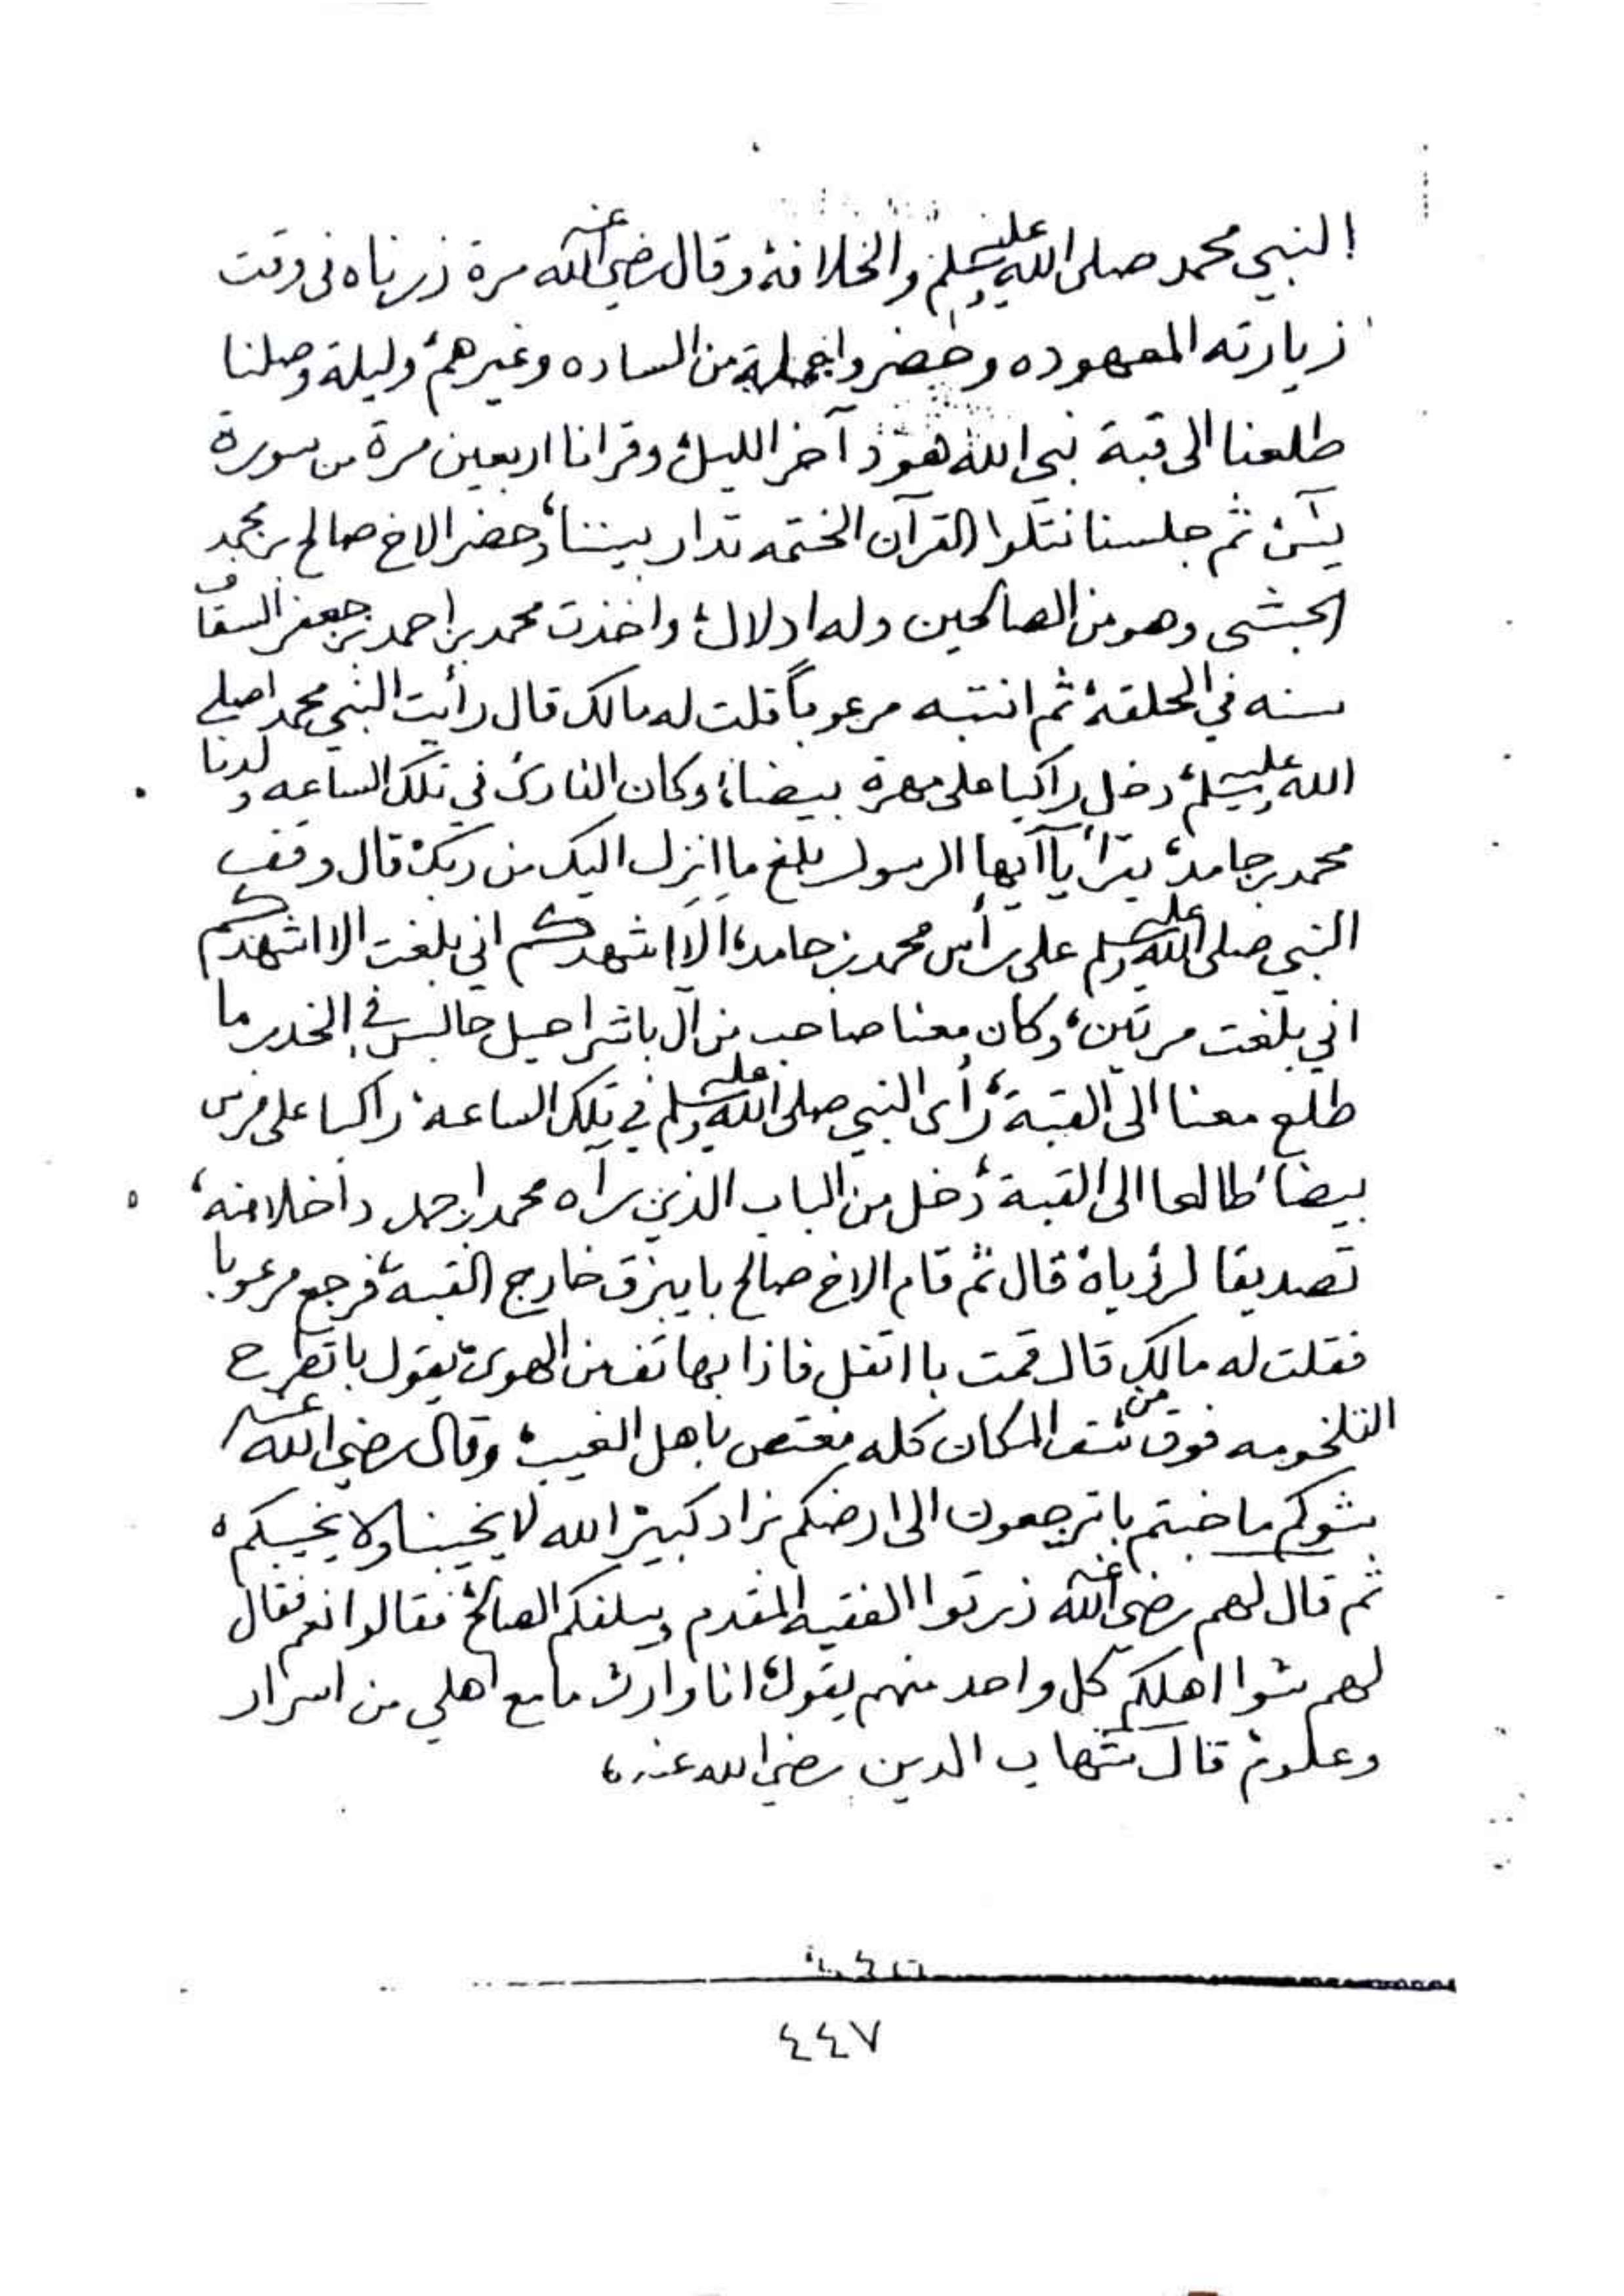 النبي محمد صلى الله عليه وسلم والخلافة وقال رضي الله عنه مرة زرناه في وقت
زيارته المعهوده وحضروا جملة من الساده وغيرهم وليلة وصلنا
طلعنا الى قبة نبي الله هود آخر الليل وقرانا اربعين مرة من سورة
يس ثم جلسنا نتلوا القرآن الختمه تدار بيننا، وحضر الاخ صالح بن محمد
الحبشي وهو من الصالحين وله ادلال واخذت محمد بن احمد بن جعفر السقاف
سنه في الحلقة ثم انتبه مرعوباً قلت له مالك قال رأيت النبي محمد صلى
الله عليه وسلم دخل راكبا على مهرة بيضاء وكان القارئ في تلك الساعه ولدنا
محمد بن حامد، يقرأ يآ آيها الرسول بلغ ما انزل اليك من ربك قال وقف
النبي صلى الله عليه وسلم على رأس محمد بن حامد، الا اشهدكم اني بلغت الا اشهدكم
اني بلغت مرتين، وكان معنا صاحب من آل باشراحيل جالس في الخدر ما
طلع معنا الى القبة، رأى النبي صلى الله عليه وسلم في تلك الساعه راكبا على فرس
بيضا طالعا الى القبة دخل من الباب الذي رآه محمد بن احمد داخلا منه،
تصديقا لرؤياه قال ثم قام الاخ صالح بايبزق خارج القبه، فرجع مرعوبا
فقلت له مالك قال قمت با اتفل فاذا بهاتف من الهوى يقول باتطرح
التلخومه فوق من شف المكان كله مغتص باهل الغيب، وقال رضي الله عنه
شوكم ما خبتم باترجعون الى ارضكم بزاد كبير الله لا يخيبنا ولا يخيبكم ه
ثم قال لهم رضي الله عنه زرتوا الفقيه المقدم وسلفكم الصالح فقالوا نعم فقال
لهم شوا اهلكم كل واحد منهم يقول، انا وارث ما مع اهلي من اسرار
وعلوم قال شهاب الدين رضي الله عنه،
٤٤٧